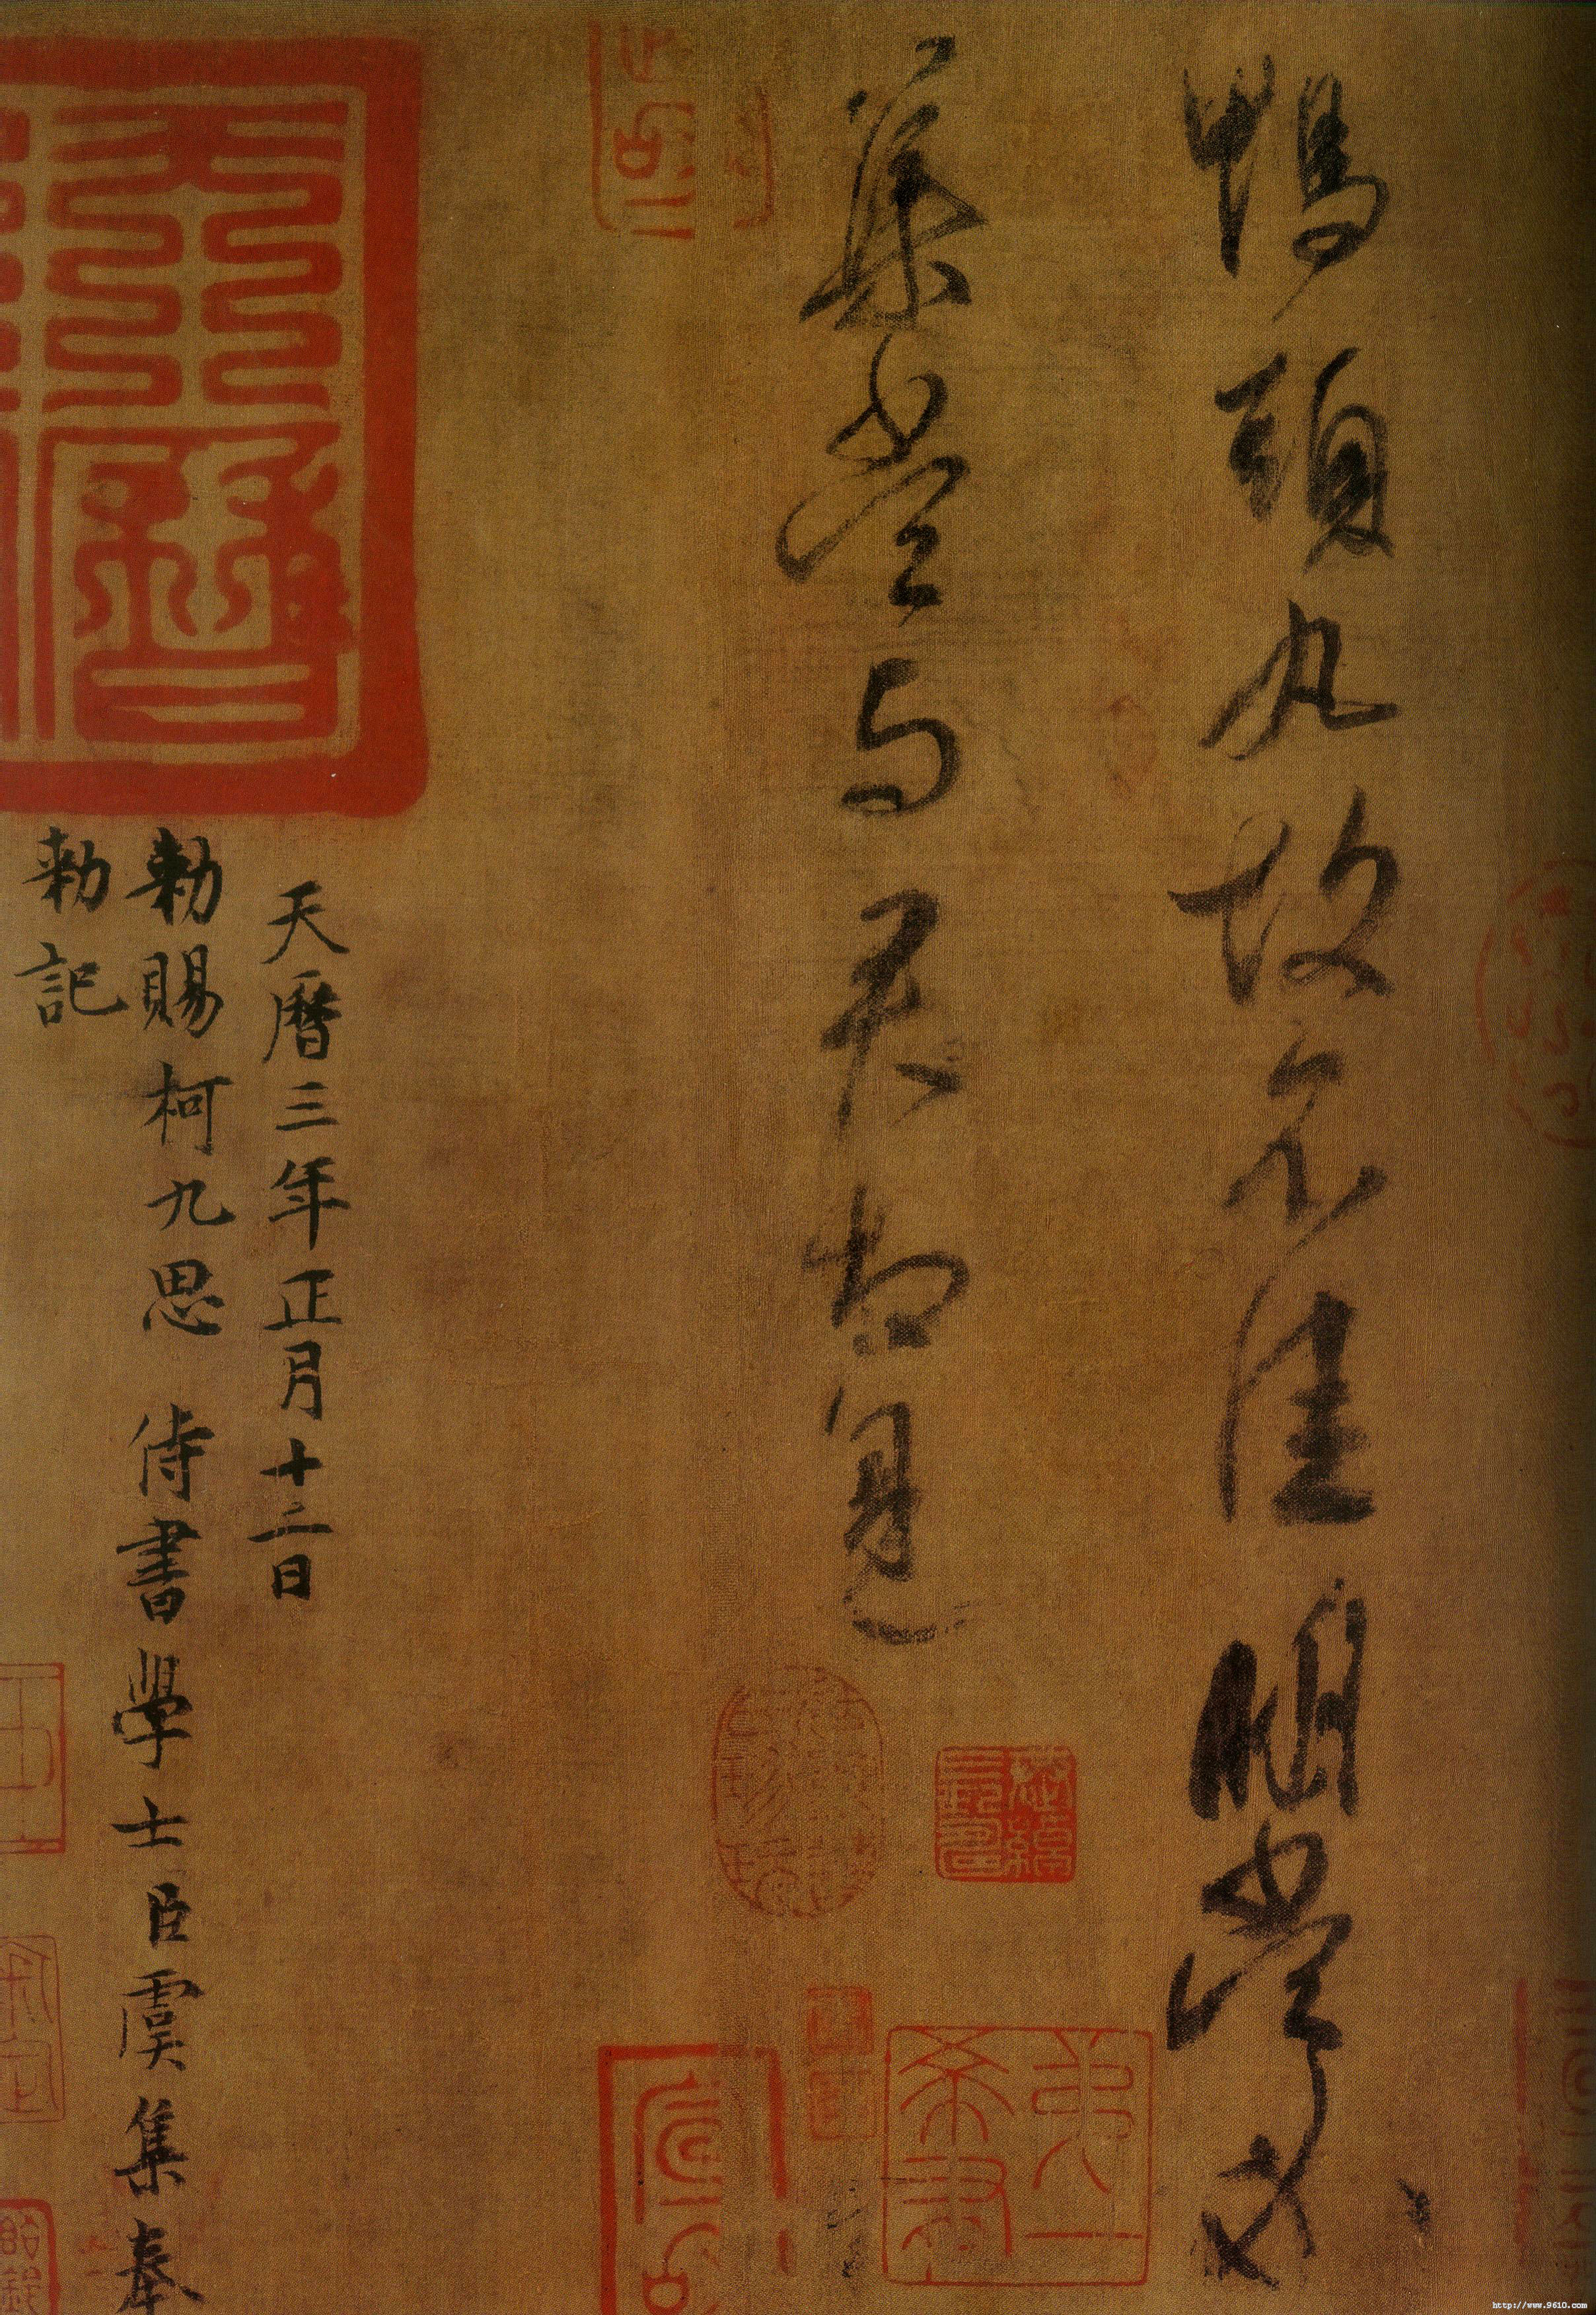 鴨頭丸故不佳明當必
集當與君相見
天曆三年正月十二日
勑賜柯九思侍書學士臣虞集奉
勑記
http://www.9610.com